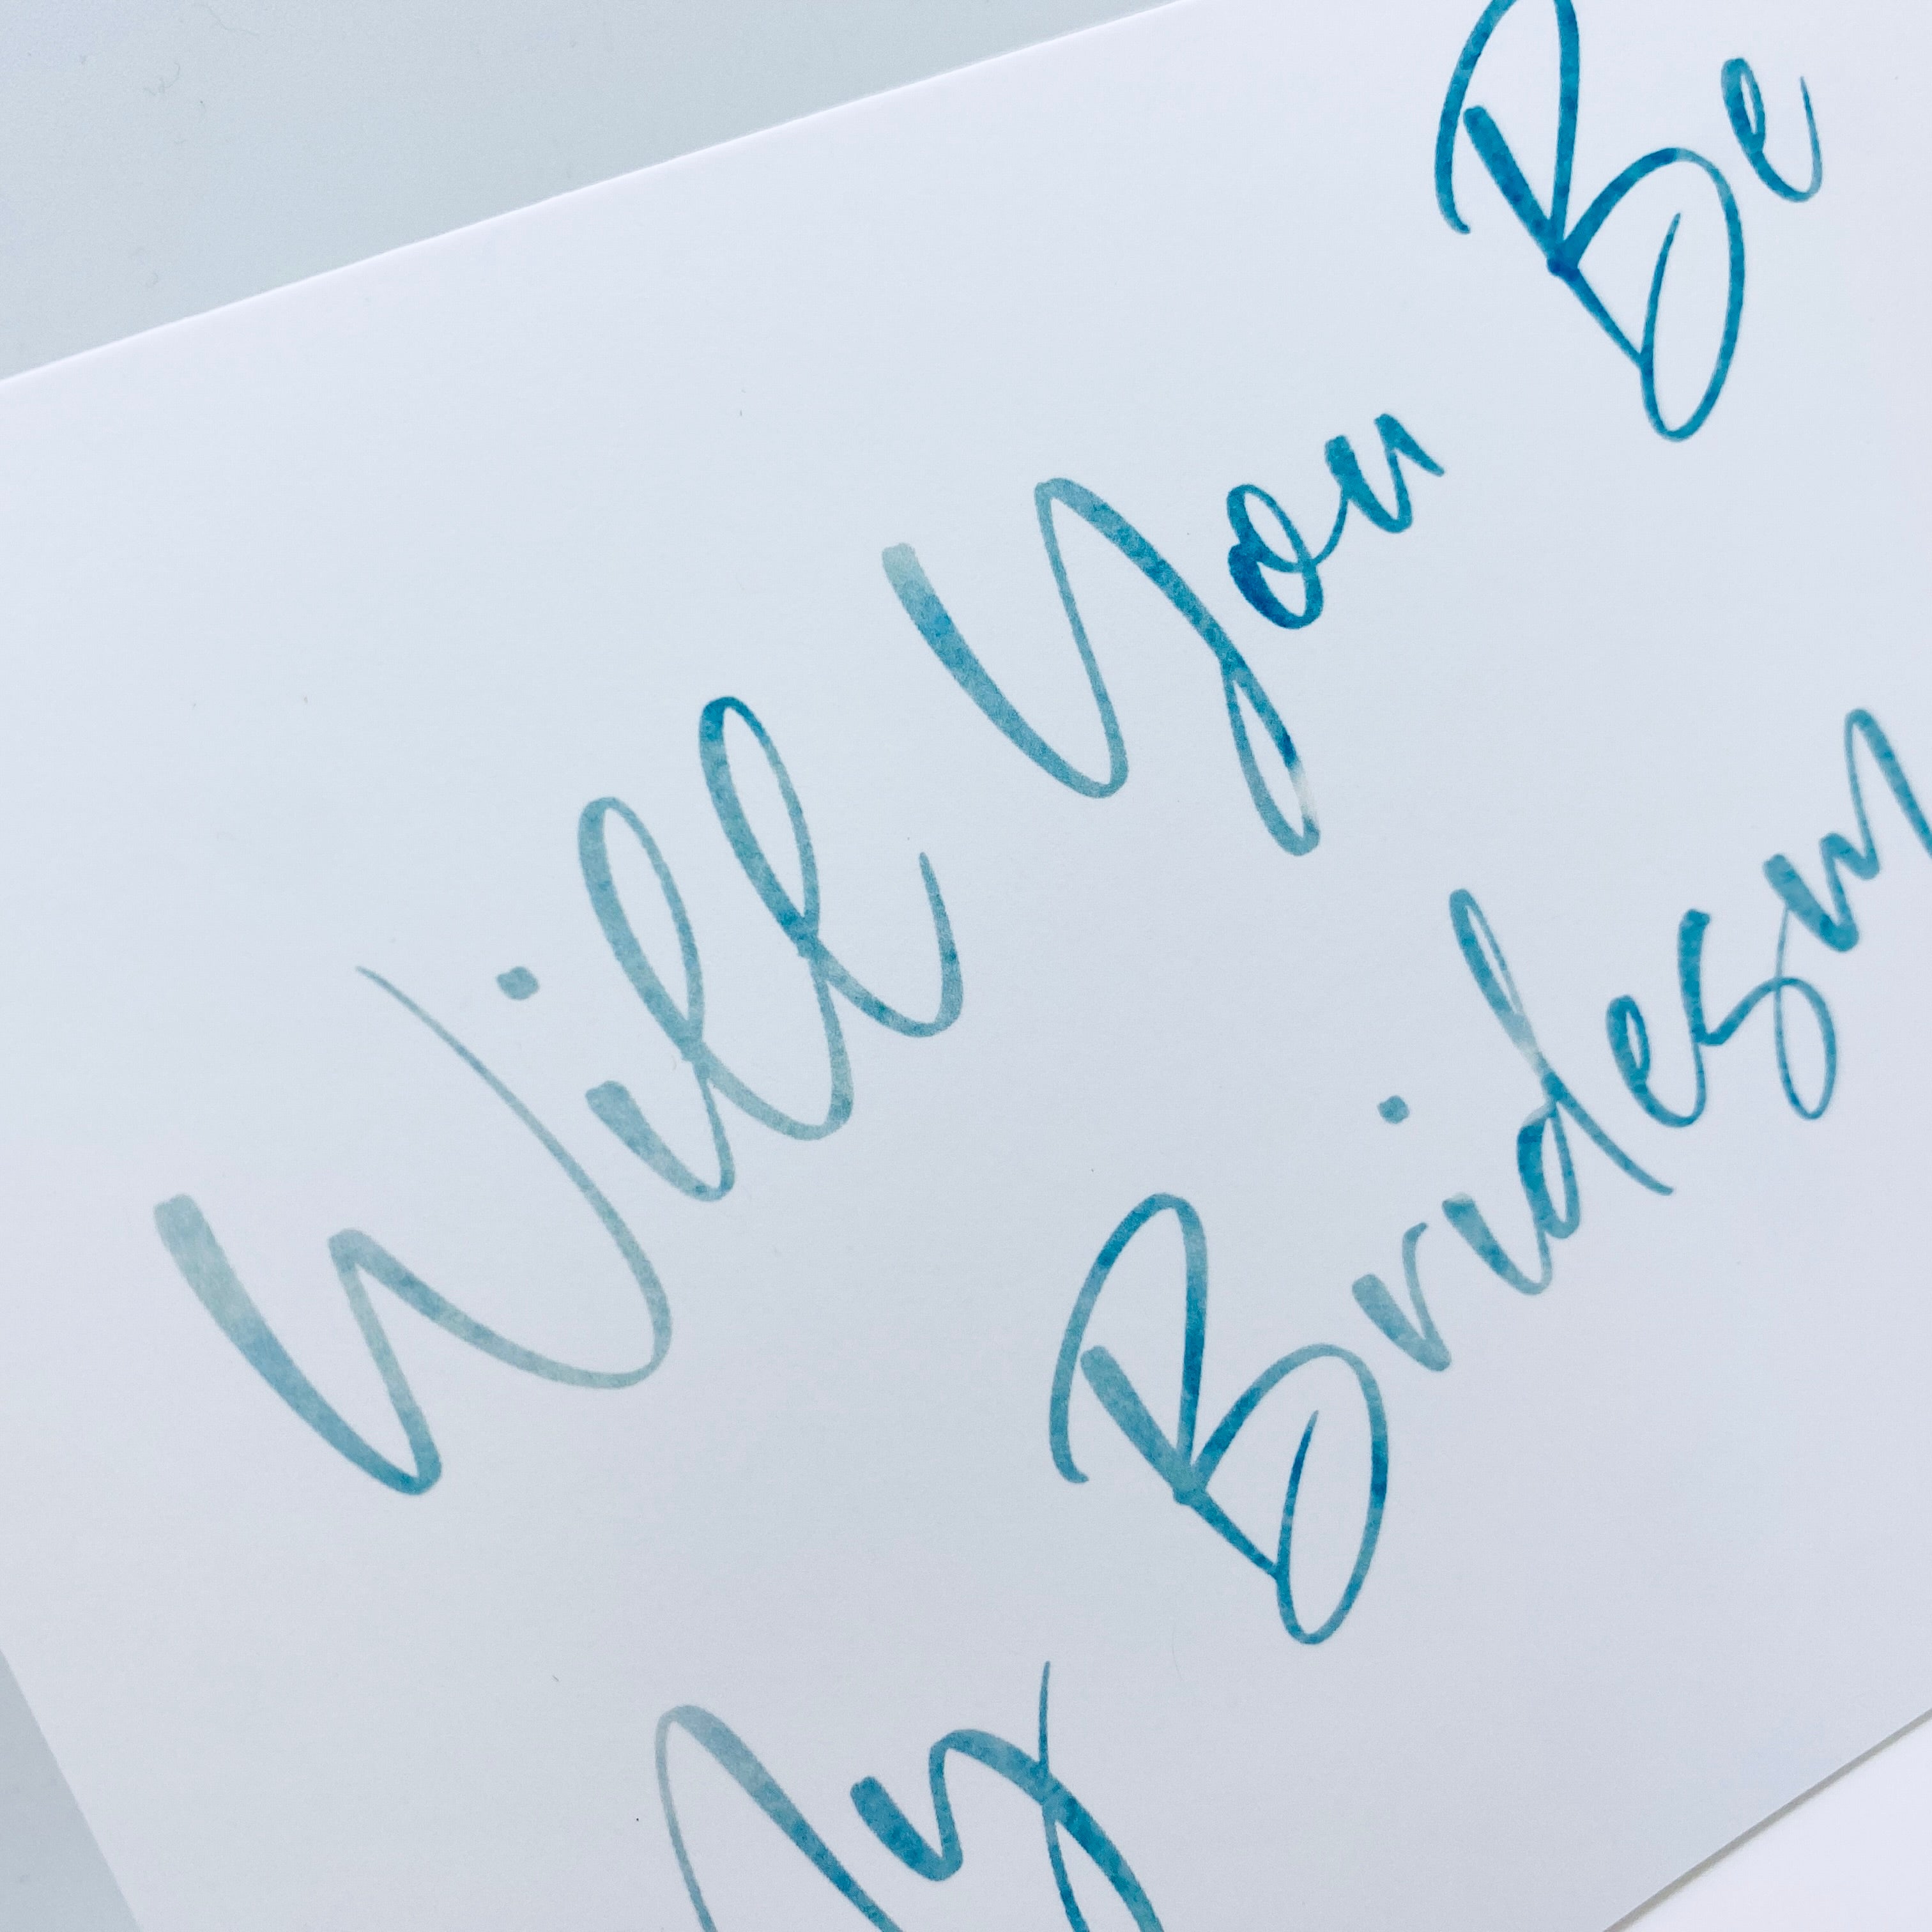 Will You Be
My Bridesm